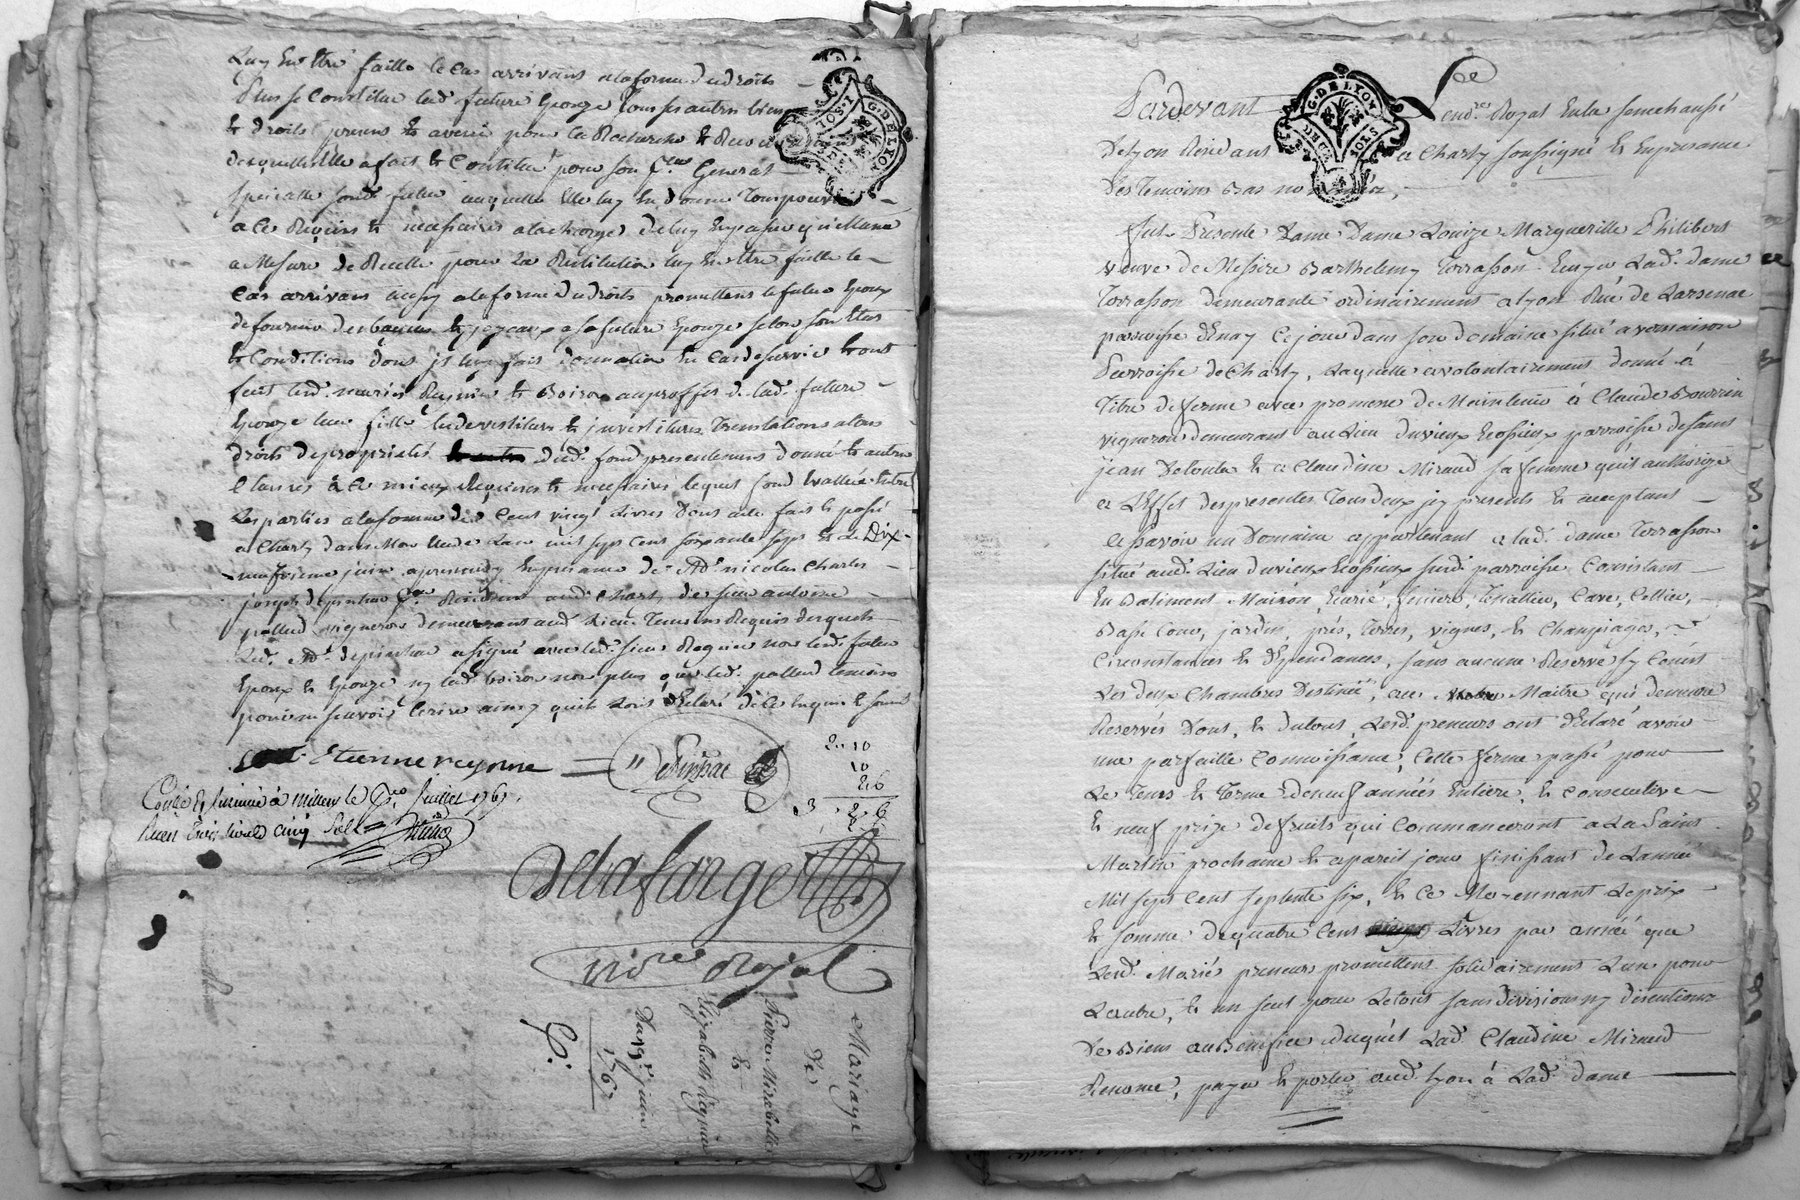 luy en être faitte le cas arrivant a la forme du droit
Plus se Constitue lad. future Epouze tous ses autres biens
& droits presens & avenir pour la Recherche & Recouvrement
desquels elle a fait & Constitué pour son p.eur General
speciale sond. futur auquelle elle luy en donne tous pouvoirs
a ce Requis & necessaires a la charge de luy
a Mesure de Recette pour la Restitution luy en être faitte le
cas arrivant aussy a la forme du droit promettant le futur Epoux
de fournir des bagues & joyeaux a sa future Epouze selon son Etat
& Conditions dont il luy fait donnation en cas de survie & ont
fait lesd. mariés Reynier & Boiron au proffit de lad. future
Epouze leur fille les devestiture & investitures Translations
droits de proprieté dud. fond presentement donné & autres
Clauses a ce mieux Requises & necessaires lequel fond Evallué entre
les parties a la somme de Cent vingt Livres Dont acte fait & passé
a Charly dans Mon Etude L'an mil sept cent soixante sept & Le Dix
neufvieme juin apres midy En presence de Nicolas Charles
joseph Depinhac Residant aud. Charly & de sieur antoine
pallud vigneron demeurant aud. Lieu Temoins Requis desquels
Led. Depinhac a signé avec led. sieur Reynier non lesd. futur
Epoux & Epouze ny lad. boiron non plus que led. pallud temoins
pour ne sçavoir Ecrire ainsy qu'ils l'ont Declaré de ce Enquis & sommé
Etienne reynier
Depinhac
2.. 10
10
26
3 . 2 . 6
Contlé & Insinué à Millery le p.er Juillet 1767
Receu Trois livres cinq sols
Delafarge
no.re Royal
Mariage
De
Pierre Mirabelle
&
Elizabeth Reynier
Du 19.e juin
1767
G. DE LYON
DEUX SOLS
Pardevant Le Con.er No.re Royal En la senechaussé
De Lyon Residant a Charly soussigné & En presence
Des Temoins Bas nommés,
Fut Presente Dame Dame Louize Margueritte Philibert
veuve de Messire Barthelemy Terrasson Ecuyer Lad. dame
Terrasson demeurante ordinairement a Lyon Rue de Larsenac
paroisse D'Enay Ce jour dans son domaine situé a vernaison
Parroisse de Charly, Laquelle a volontairement donné à
Titre de ferme avec promesse de Maintenir à Claude Bourrin
vigneron demeurant au Lieu du vieux Ecossieux parroisse de saint
jean Detoulas & a Claudine Miraud sa femme qu'il authorize
a L'Effet des presentes Tous deux icy presents & acceptant
Ce savoir un Domaine appartenant a lad. dame Terrasson
situé aud. Lieu du vieux Ecossieux susd. parroisse Consistant
En Batiment Maison, Ecurie, feniere, Tenallier, Cave, Cellier,
Basse Cour, jardin, prés, Terres, vignes, & Champiages,
Circonstances & Dépendances, sans aucune Reserve sy Cenest
Les deux Chambres Destinée, au Maitre qui demeure
Reservés Dont, & du tout, Lesd. preneurs ont déclaré avoir
une parfaitte Connoissance, Cette ferme passé pour
Le Tems & Terme de neuf années Entiere, & consecutive
& neuf prize de fruits qui Commanceront a La Saint
Martin prochaine & a pareil jour finissant de L'année
Mil sept Cent septente six, & Ce Moyennant Le prix
& somme de quatre Cent Livres par année que
Lesd. Mariés preneurs promettent solidairement L'un pour
L'autre, & un seul pour Le tout sans division ny discution
De Biens au Benifice duquel Lad. Claudine Miraud
Renonce, payer & porter aud. Lyon à Lad. dame